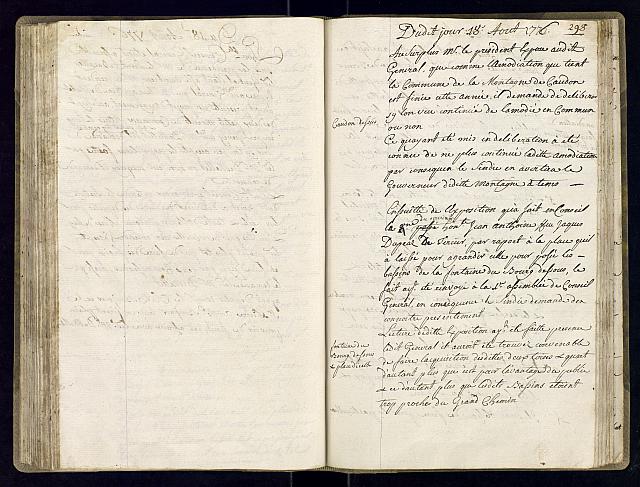 Dudit jour 18e Aout 1776.
293
Au surplus Mr. le president Expose audit
General, que comme l'Amodiation que tient
la Commune de la Montagne de Caudon
est finie cette année, il demande de deliberer
sy lon veu continué de lamodié en Commun
ou non
Caudon dessous
Ce quayant été mis en deliberation à été
connue de ne plus continué ladite amodiation
par consequen le sindic en avertira le
Gouverneur didite Montagne à tems —
Ensuitte de l'Exposition qu'a fait en Conseil
la honble Jean Anthoine feu Jaques
par rapport à la place quil
à laissé pour agrandir celle pour posé les
bassins de la fontaine du Bourg dessous, le
fait ayt. été renvoyé à la 1re assemblée de Conseil
General, en consequence le Sindic demande den
connoitre presentement
Lecture didite Exposition ayt. été faitte presence
dudit General il auroit été trouvé convenable
de faire lacquisition desdites deux toises & quart
dautant plus que cest pour lavantage du public
& ce dautant plus que lesdits Bassins etoient
trop proches du Grand Chemin
fontaine du
Bourg dessous
& place dicelle